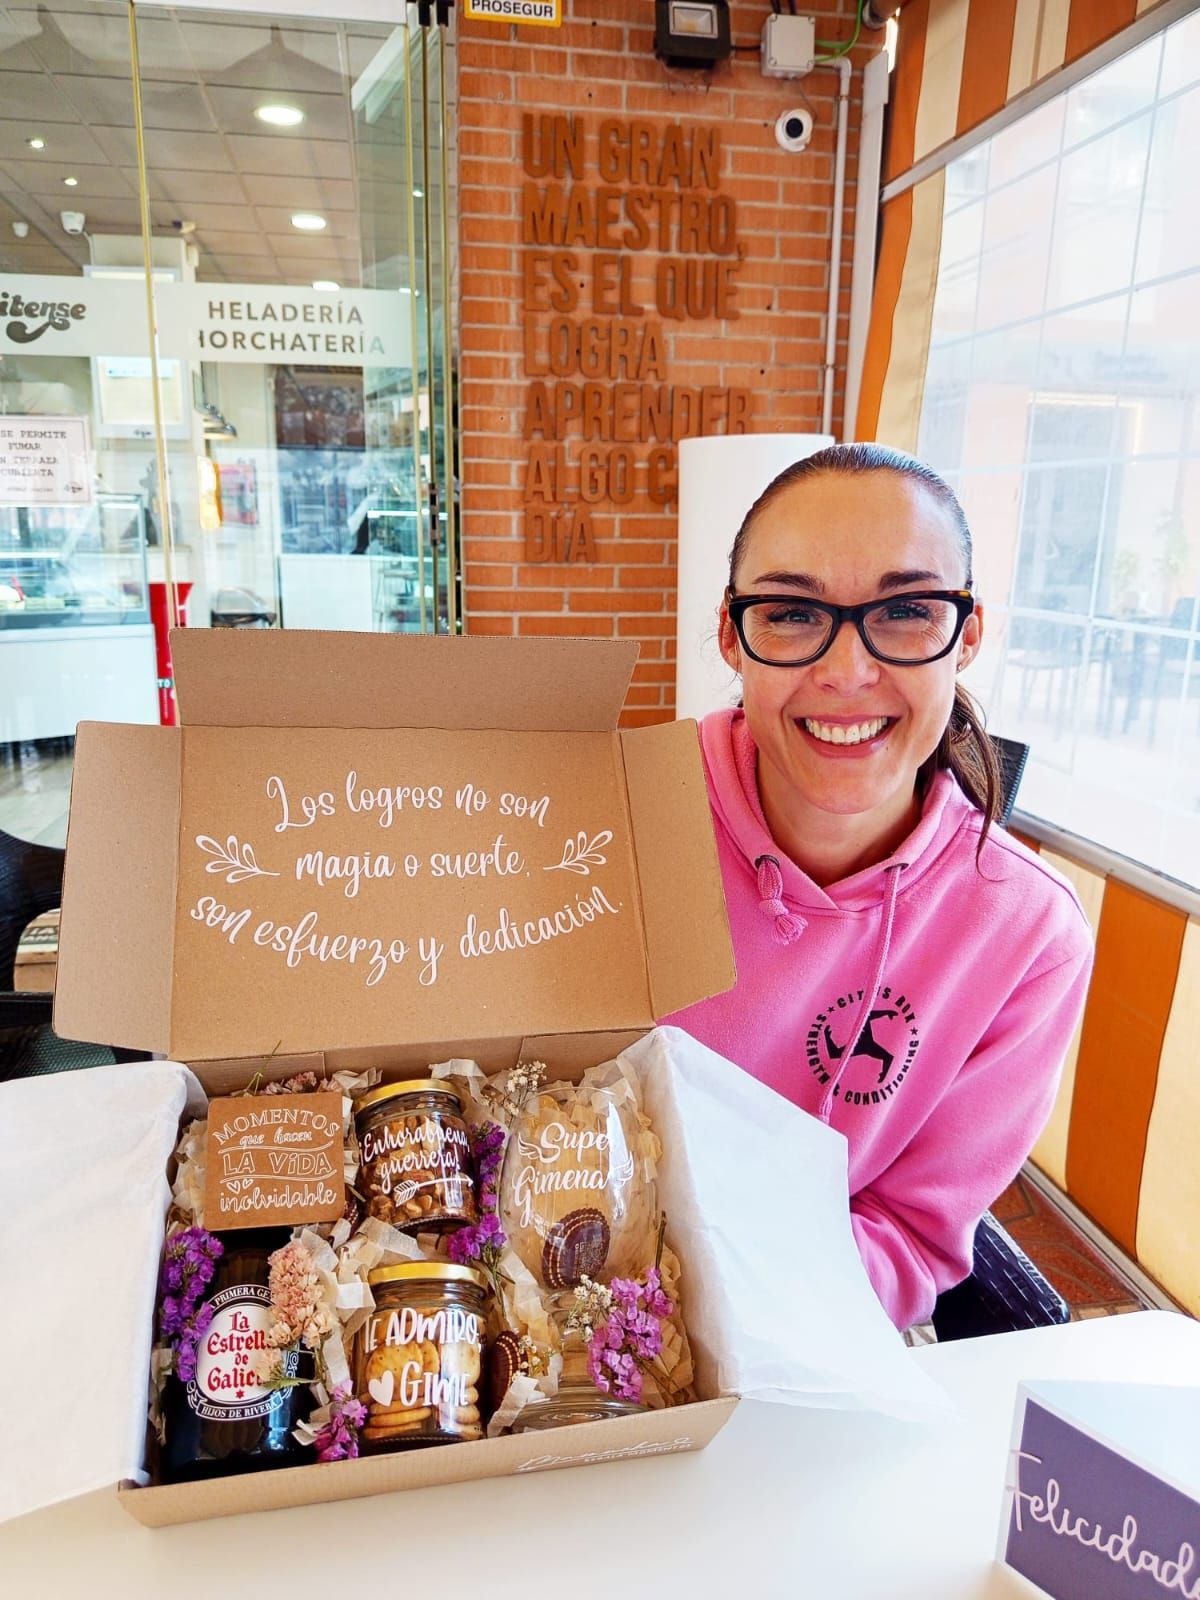 PROSEGUR
UN GRAN
MAESTRO,
ES EL QUE
LOGRA
APRENDER
ALGO C
DÍA
itense
HELADERÍA
HORCHATERÍA
SE PERMITE
FUMAR
EN TERRAZA
CUBIERTA
Los logros no son
magia o suerte,
son esfuerzo y dedicación.
CITRUS BOX
STRENGTH & CONDITIONING
MOMENTOS
que hacen
LA VIDA
inolvidable
¡Enhorabuena,
guerrera!
Super
Gimena
LA PRIMERA GE
La
Estrella
de
Galicia
HIJOS DE RIVERA
TE ADMIRO,
GIME
REGALA MOMENTOS
Felicidade